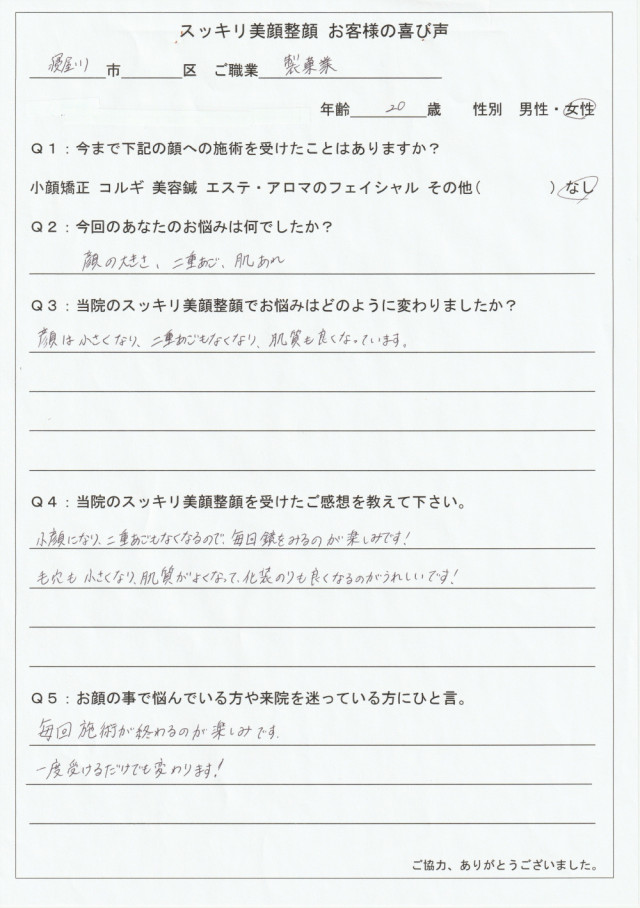 スッキリ美顔整顔 お客様の喜び声
寝屋川市 区 ご職業 製菓業
年齢 20 歳 性別 男性・女性
Q1:今まで下記の顔への施術を受けたことはありますか?
小顔矯正 コルギ 美容鍼 エステ・アロマのフェイシャル その他( ) なし
Q2:今回のあなたのお悩みは何でしたか?
顔の大きさ、二重あご、肌あれ
Q3:当院のスッキリ美顔整顔でお悩みはどのように変わりましたか?
顔は小さくなり、二重あごもなくなり、肌質も良くなっています。
Q4:当院のスッキリ美顔整顔を受けたご感想を教えて下さい。
小顔になり、二重あごもなくなるので、毎日鏡をみるのが楽しみです!
毛穴も小さくなり、肌質がよくなって、化装のりも良くなるのがうれしいです!
Q5:お顔の事で悩んでいる方や来院を迷っている方にひと言。
毎回施術が終わるのが楽しみです.
一度受けるだけでも変わります!
ご協力、ありがとうございました。